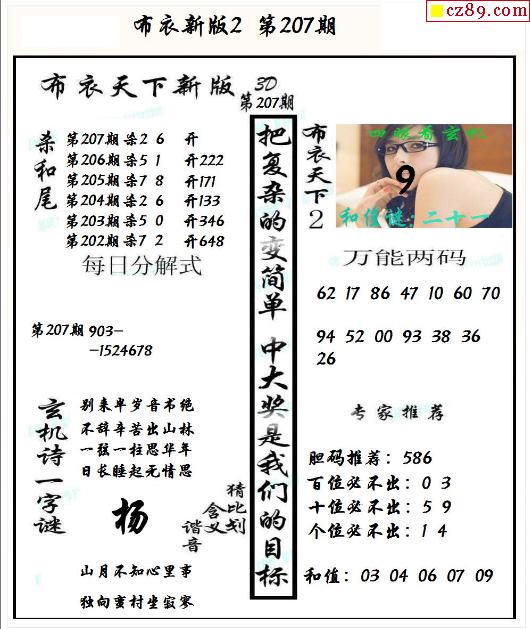 cz89.com
布衣新版2 第207期
布衣天下新版 3D
第207期
杀和尾
第207期杀2 6 开
第206期杀5 1 开222
第205期杀7 8 开171
第204期杀2 6 开133
第203期杀5 0 开346
第202期杀7 2 开648
每日分解式
第207期 903-
-1524678
玄机诗一字谜
别来半岁音书绝
不辞辛苦出山林
一弦一柱思华年
日长睡起无情思
杨
猜比划
含义
谐音
山月不知心里事
独向蛮村坐寂寥
把复杂的变简单 中大奖是我们的目标
布衣天下2
四眼看玄机
9
和值谜:二十一
万能两码
62 17 86 47 10 60 70
94 52 00 93 38 36
26
专家推荐
胆码推荐: 586
百位必不出: 0 3
十位必不出: 5 9
个位必不出: 1 4
和值: 03 04 06 07 09